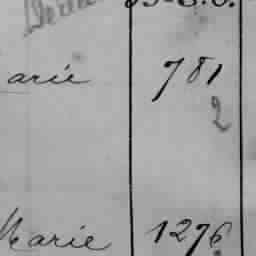 arie 781
2
Marie 1276